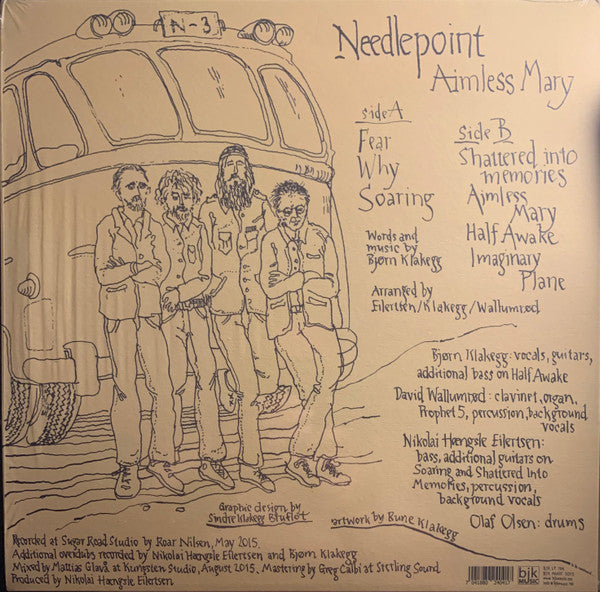 N-3
Needlepoint
Aimless Mary
side A
Fear
Why
Soaring
Words and
music by
Bjørn Klakegg
Arranged by
Eilertsen/Klakegg/Wallumrød
side B
Shattered into
memories
Aimless
Mary
Half Awake
Imaginary
Plane
Bjørn Klakegg: vocals, guitars,
additional bass on Half Awake
David Wallumrød: clavinet, organ,
Prophet 5, percussion, background
vocals
Nikolai Hængsle Eilertsen:
bass, additional guitars on
Soaring and Shattered Into
Memories, percussion,
background vocals
Olaf Olsen: drums
Graphic design by
Sindre Klakegg Btuflot
artwork by Rune Klakegg
Recorded at Sugar Road Studio by Roar Nilsen, May 2015.
Additional overdubs recorded by Nikolai Hængsle Eilertsen and Bjørn Klakegg
Mixed by Mattias Glavå at Kungsten Studio, August 2015. Mastering by Greg Calbi at Sterling Sound.
Produced by Nikolai Hængsle Eilertsen
bjk
MUSIC